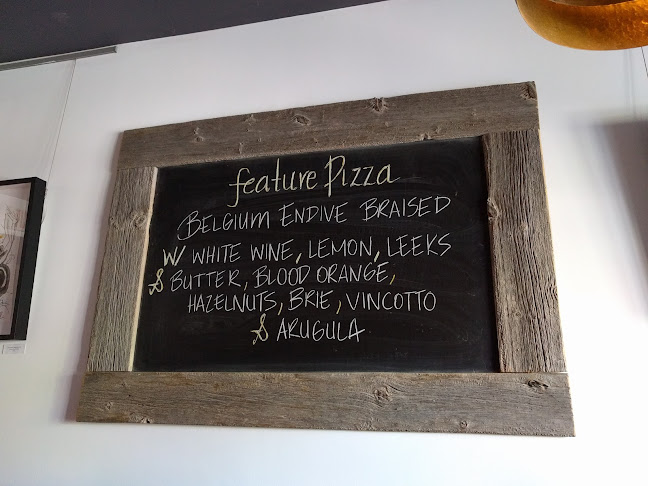 feature Pizza
BELGIUM ENDIVE BRAISED
W/ WHITE WINE, LEMON, LEEKS
& BUTTER, BLOOD ORANGE,
HAZELNUTS, BRIE, VINCOTTO
& ARUGULA